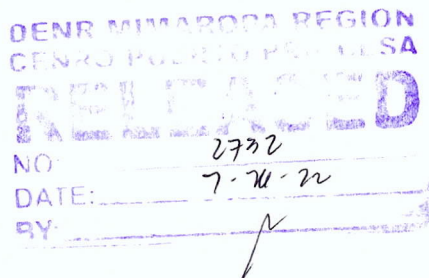 DENR MIMAROPA REGION
CENRO PUERTO PRINCESA
RELEASED
NO: 2732
DATE:
BY: